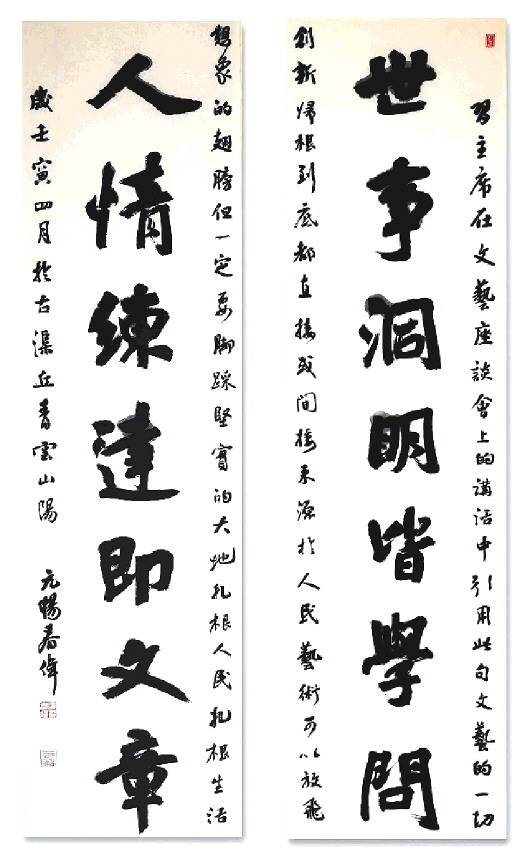 習主席在文藝座談會上的講話中引用此句文藝的一切
世事洞明皆學問
創新歸根到底都直接或間接來源於人民藝術可以放飛
想象的翅膀但一定要腳踩堅實的大地扎根人民扎根生活
人情練達即文章
歲壬寅四月於古渠丘青雲山陽
春偉